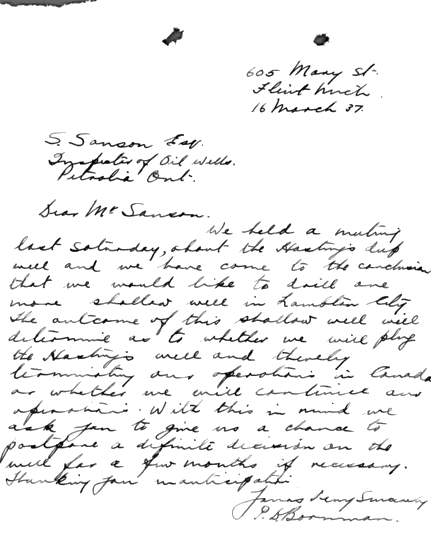 605 Mary St.
Flint Mich.
16 March 37.
S. Sanson Esq.
Inspector of Oil Wells.
Petrolia Ont.
Dear Mr Sanson.
We held a meeting
last Saturday, about the Hastings deep
well and we have come to the conclusion
that we would like to drill one
more shallow well in Lambton City
The outcome of this shallow well will
determine as to whether we will plug
the Hastings well and thereby
terminating our operations in Canada
or whether we will continue our
operations. With this in mind we
ask you to give us a chance to
postpone a definite decision on the
well for a few months if necessary.
Thanking you in anticipation
Yours Very Sincerely
Boorman.